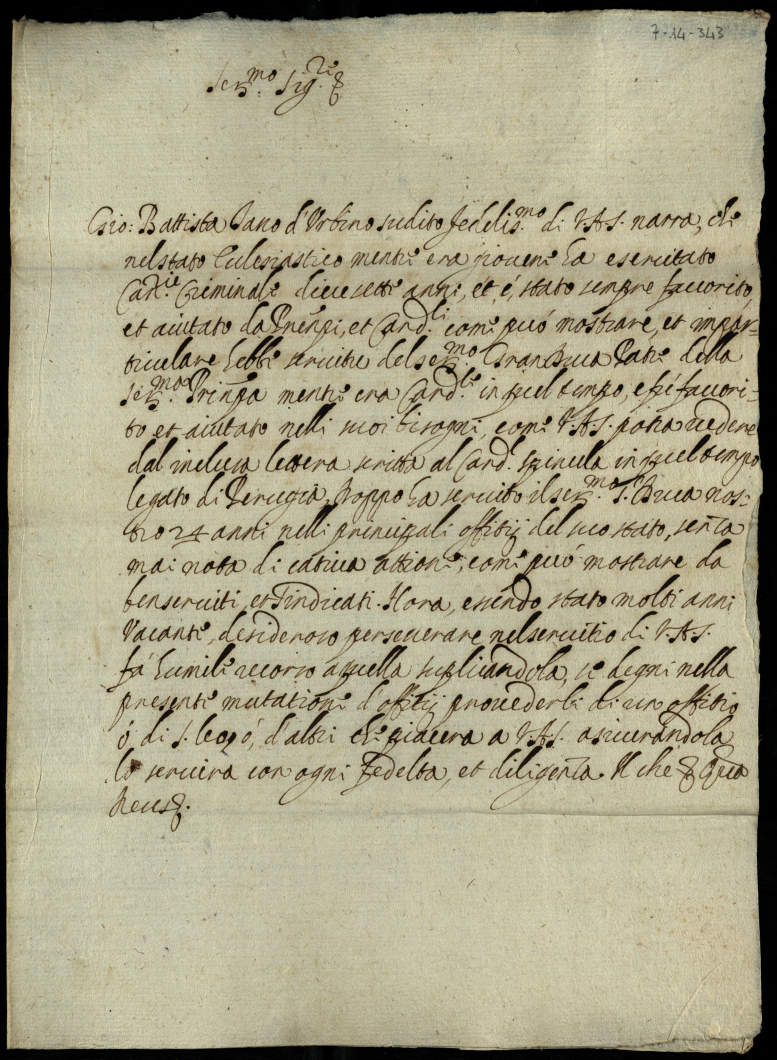 7-14-343
Ser.mo Sig.re
Gio: Battista Pano d'Urbino sudito fedelis.mo di V.A.S. narra, che
nel stato Eclesiastico mentre era giovene ha esercitato
Criminale diecesette anni, et, é, stato sempre favorito,
et aiutato da Prenpi, et Card.li come puó mostrare, et inpar-
ticulare hebbe servitu del ser.mo Gran Duca Patre della
Ser.ma Prinpa mentre era Card.le in quel tempo, e fú favori-
to et aiutato nelli suoi bisogni, come V.A.S. potra vedere
dal inclusa lettera scritta al Card. Spinula in quel tempo
legato di Perugia. Doppo ha servito il ser.mo S. Duca nos-
tro 24 anni nelli principali offitij del suo stato, senza
mai nota di cativa attione, come puó mostrare da
benserviti, et sindicati. Hora, esendo stato molti anni
Vacante, desideroso perseverare nel servitio di V.A.S.
fá humile recorso a quella suplicandola, se degni nella
presente mutatione d'offitij provederli di un offitio
ó di S. Leo, ó, d'altri che piacera a V.A.S. asicurandola
lo servira con ogni fedelta, et diligenza. Il che